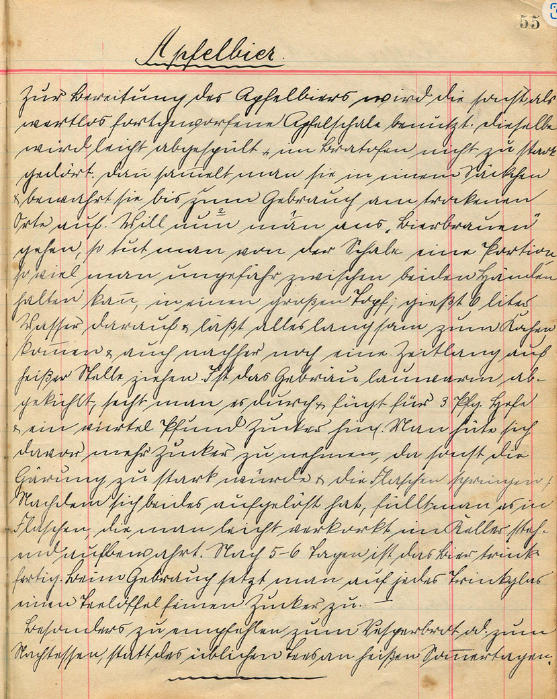 55
Apfelbier.
Zur Bereitung des Apfelbiers wird die sonst als
wertlos fortgeworfene Apfelschale benutzt. Dieselbe
wird leicht abgespült & im Bratofen nicht zu stark
gedört, dan̄ sam̄elt man sie in einem Säckchen
& bewahrt sie bis zum Gebrauch am trockenen
Orte auf. Will nun man ans „Bierbrauen"
gehen, so tut man von der Schale eine Portion
so viel man ungefähr zwischen beiden Händen
halten kan̄, in einen großen Topf; gießt 6 liter
Wasser darauf & läßt alles langsam zum Kochen
kom̄en & auch nachher noch eine Zeitlang auf
heißer Stelle ziehen. Ist das Gebräu lauwarm ab-
gekühlt, seiht man es durch & fügt für 3 Pfg. Hefe
& ein viertel Pfund Zucker hin. Man hüte sich
davor mehr Zucker zu nehmen, da sonst die
Gärung zu stark würde & die Flaschen springen!
Nachdem sich beides aufgelöst hat, füllt man es in
Flaschen, die man leicht verkorkt, im Keller steh-
end aufbewahrt. Nach 5-6 Tagen ist das Bier trink
fertig. Beim Gebrauch setzt man auf jedes Trinkglas
einen Teelöffel feinen Zucker zu. —
Besonders zu empfehlen zum Vesperbrot od. zum
Nachtessen, statt des üblichen Tees an heißen Som̄ertagen.